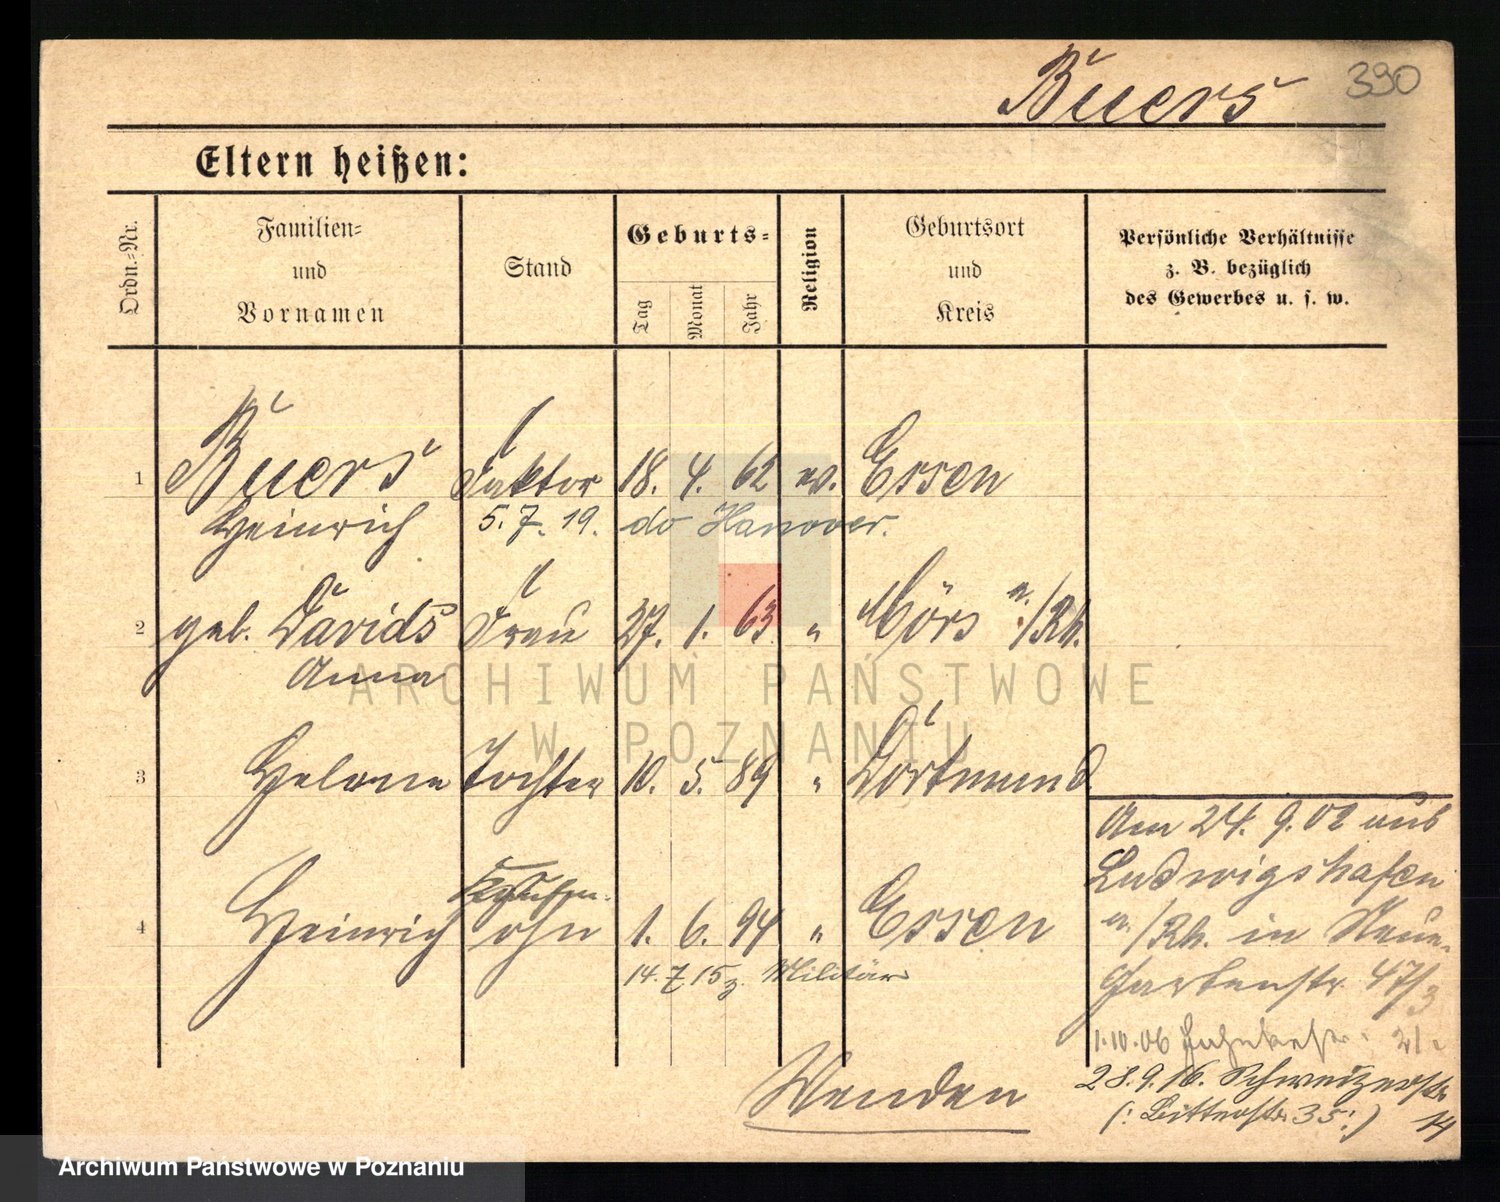 Buers 390
Eltern heißen:
Ordn.-Nr.
Familien-
und
Vornamen
Stand
Geburts-
Tag
Monat
Jahr
Religion
Geburtsort
und
Kreis
Persönliche Verhältnisse
z. B. bezüglich
des Gewerbes u. s. w.
1 Buers Faktor 18. 4. 62 ev. Essen
Heinrich 5. 7. 19. do Hanover.
2 geb. Davids Frau 27. 1. 63 " Mörs a./Rh.
Anna
3 Helene Tochter 10. 5. 89 " Dortmund
4 Heinrich Sohn 1. 6. 94 " Essen
14. 7 15 z. Militär
Am 24. 9. 02 aus
Ludwigshafen
a./Rh. in Neue-
Gartenstr. 47/3
1.10.06
28.9.16. Schweizerstr
(: Bitterstr. 35 :) 14
Wenden
ARCHIWUM PAŃSTWOWE
W POZNANIU
Archiwum Państwowe w Poznaniu